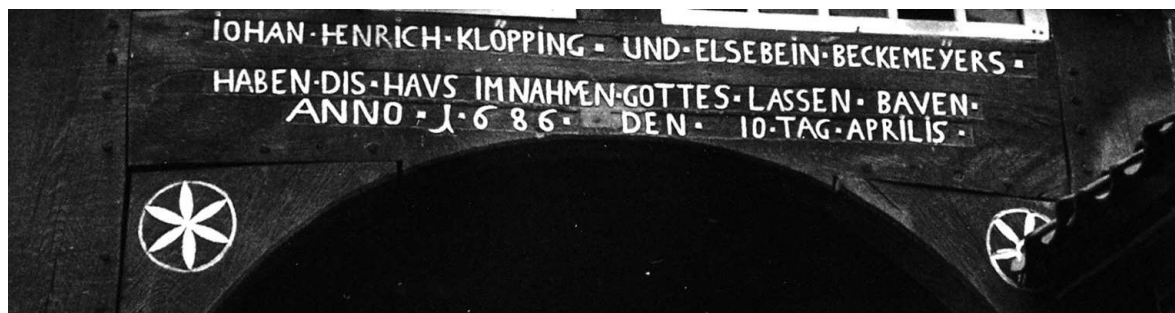 IOHAN·HENRICH·KLÖPPING· UND·ELSEBEIN·BECKEMEŸERS·
HABEN·DIS·HAVS IM NAHMEN·GOTTES·LASSEN·BAVEN·
ANNO·1·686· DEN· 10·TAG·APRILIS·